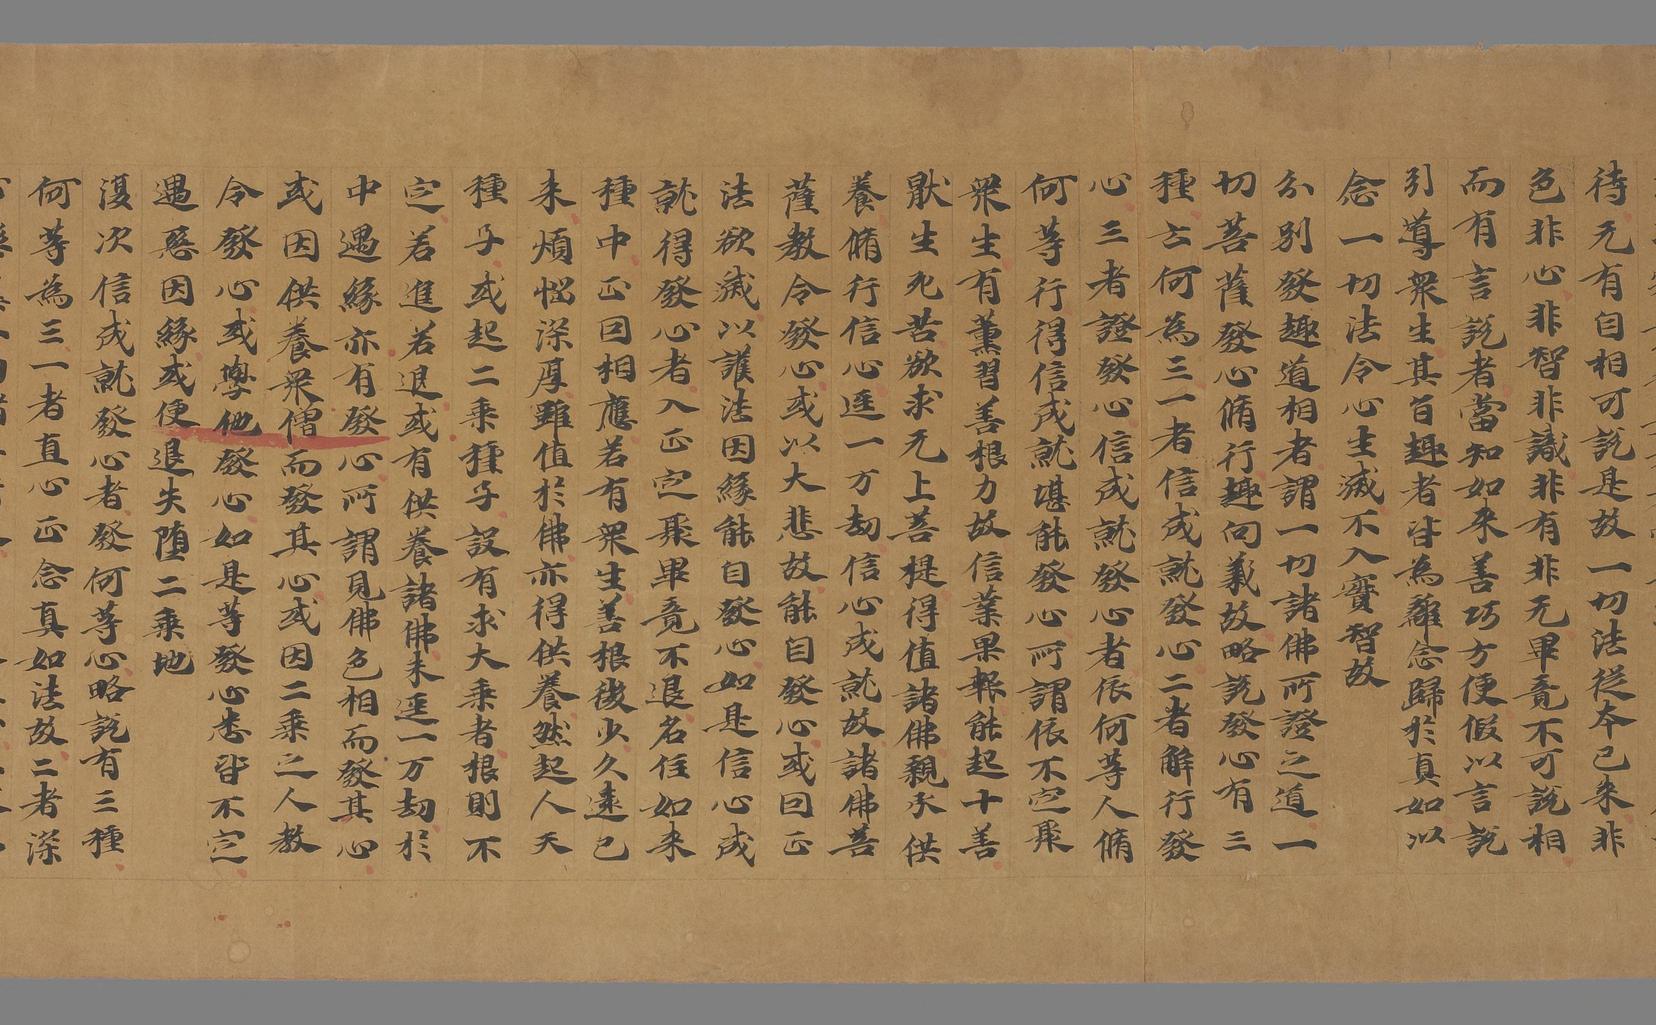 待无有自相可説是故一切法從夲已来非
色非心非智非識非有非无畢竟不可説相
而有言説者當知如来善巧方便假以言説
引導衆生其旨趣者皆為離念歸於真如以
念一切法令心生滅不入實智故
分別發趣道相者謂一切諸佛所證之道一
切菩薩發心脩行趣向義故略説發心有三
種云何為三一者信成就發心二者解行發
心三者證發心信成就發心者依何等人脩
何等行得信成就堪能發心所謂依不定聚
衆生有薫習善根力故信業果報能起十善
猒生死苦欲求无上菩提得值諸佛親承供
養脩行信心逕一万劫信心成就故諸佛菩
薩教令發心或以大悲故能自發心或因正
法欲滅以護法因緣能自發心如是信心成
就得發心者入正定聚畢竟不退名住如来
種中正因相應若有衆生善根微少久遠已
来煩惱深厚雖值於佛亦得供養然起人天
種子或起二乘種子設有求大乘者根則不
定若進若退或有供養諸佛未逕一万劫於
中遇緣亦有發心所謂見佛色相而發其心
或因供養衆僧而發其心或因二乘之人教
令發心或學他發心如是等發心悉皆不定
遇惡因緣或便退失墮二乘地
復次信成就發心者發何等心略説有三種
何等為三一者直心正念真如法故二者深